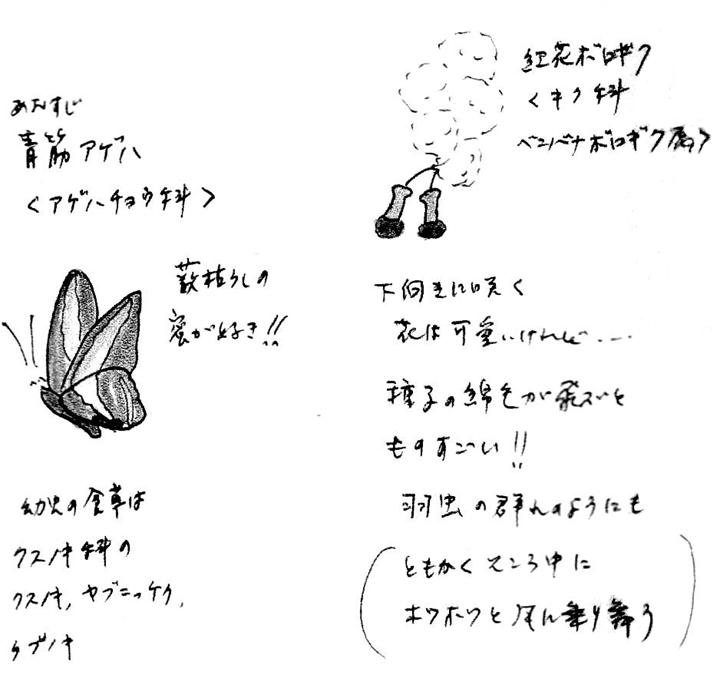 あおすじ
青筋アゲハ
<アゲハチョウ科>
藪枯らしの
蜜が好き!!
幼虫の食草は
クスノキ科の
クスノキ,ヤブニッケイ,
タブノキ
紅花ボロギク
<キク科
ベニバナボロギク属>
下向きに咲く
花は可愛いけれど...
種子の綿毛が飛ぶと
ものすごい!!
羽虫の群れのようにも
ともかくそこら中に
ホワホワと
舞う